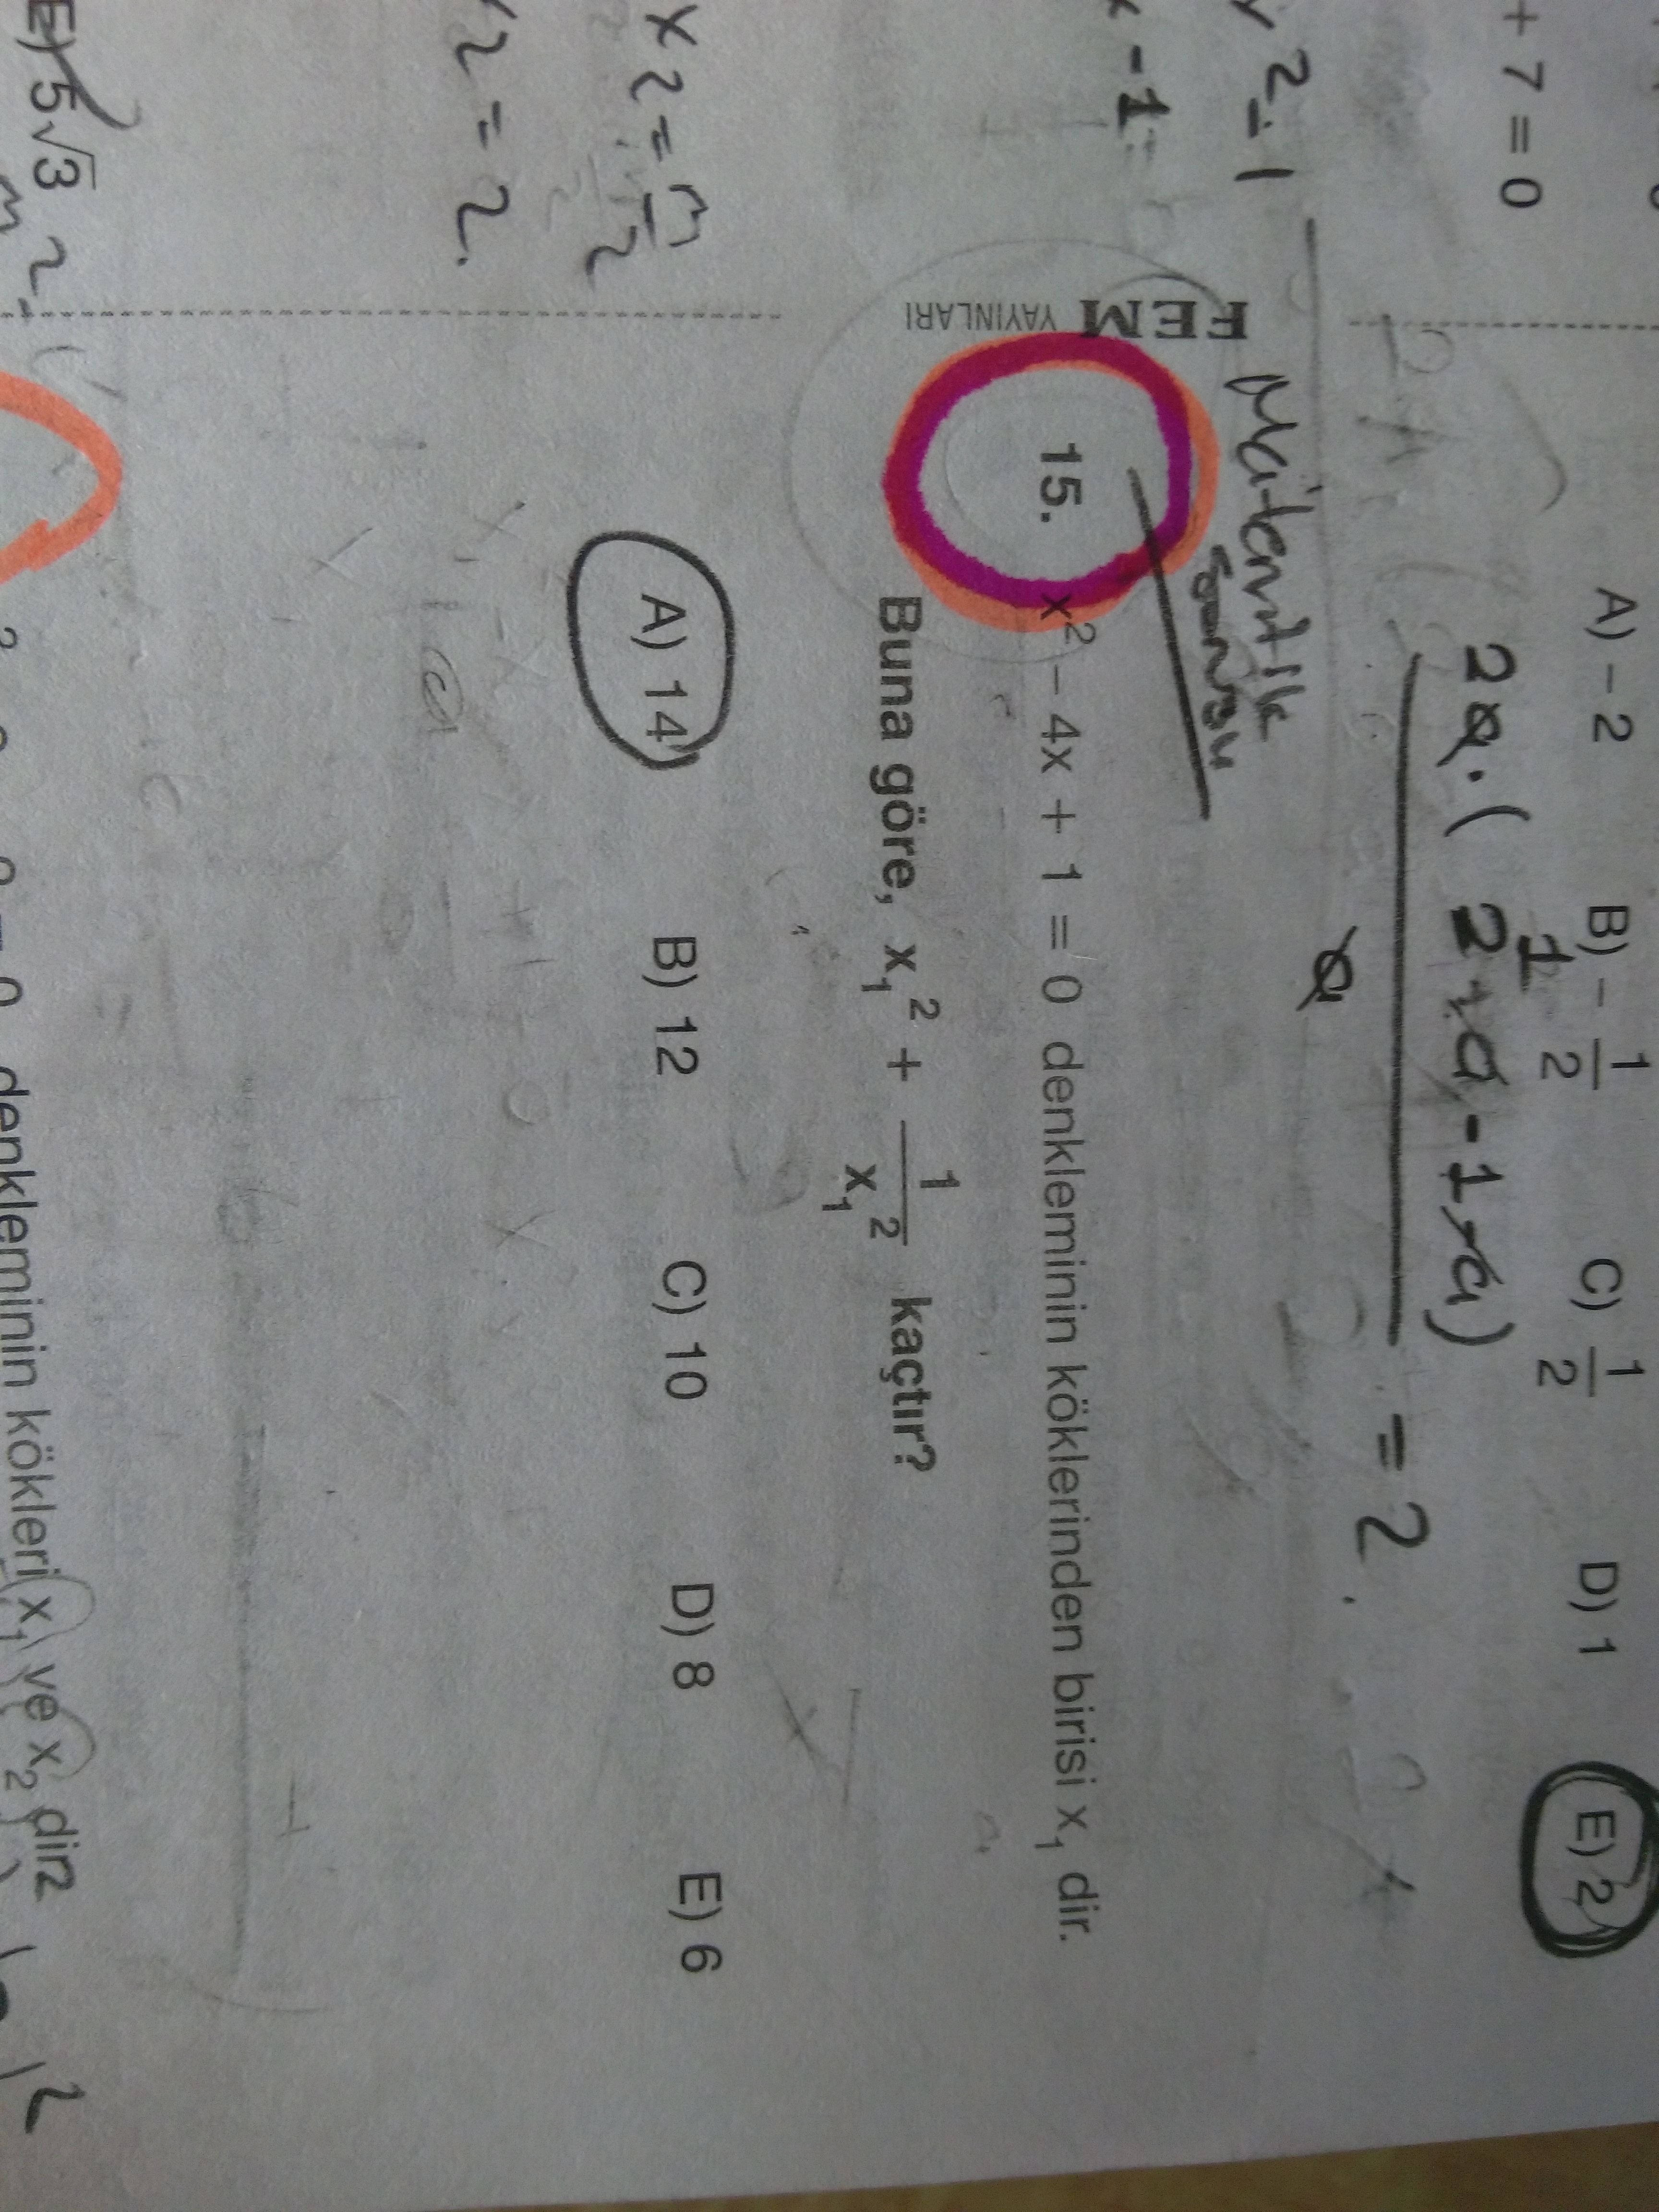 + 7 = 0
A) – 2 B) – 1/2 C) 1/2 D) 1 E) 2
1
2a.(2+a-1-a)
a
= 2
2-1
-1
FEM YAYINLARI
Matematik
sorusu
15. x² – 4x + 1 = 0 denkleminin köklerinden birisi x₁ dir.
Buna göre, x₁² + 1/x₁² kaçtır?
A) 14 B) 12 C) 10 D) 8 E) 6
x2 = m/2
2 = 2.
E) 5√3
m2
denkleminin kökleri x₁ ve x₂ dir
2